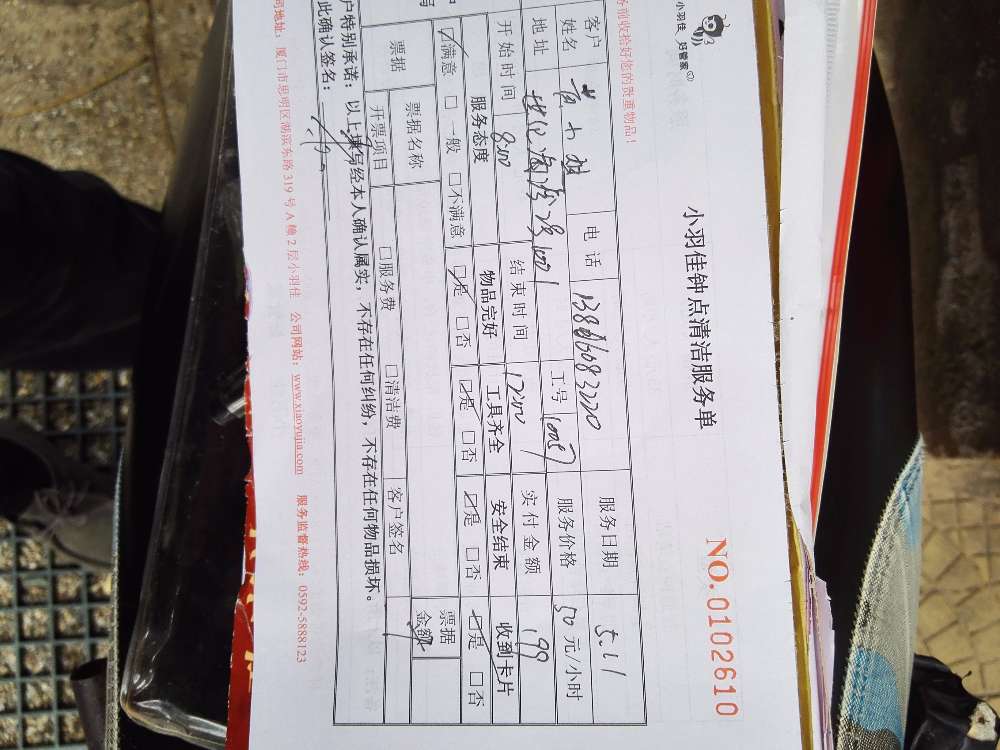 小羽佳 好管家
务前收捡好您的贵重物品！
小羽佳钟点清洁服务单
NO. 0102610
客户姓名 电话 服务日期 5.21
地址 工号 服务价格 50 元/小时
开始时间 8:00 结束时间 12:00 实付金额 199
服务态度 物品完好 工具齐全 安全结束 收到卡片
☑满意 □一般 □不满意 ☑是 □否 ☑是 □否 ☑是 □否 ☑是 □否
票据 票据名称 票据金额
开票项目 □服务费 □清洁费 客户签名
户特别承诺：以上填写经本人确认属实，不存在任何纠纷，不存在任何物品损坏。
此确认签名：
司地址：厦门市思明区湖滨东路 319 号 A 幢 2 层小羽佳 公司网站：www.xiaoyujia.com 服务监督热线：0592-5888123